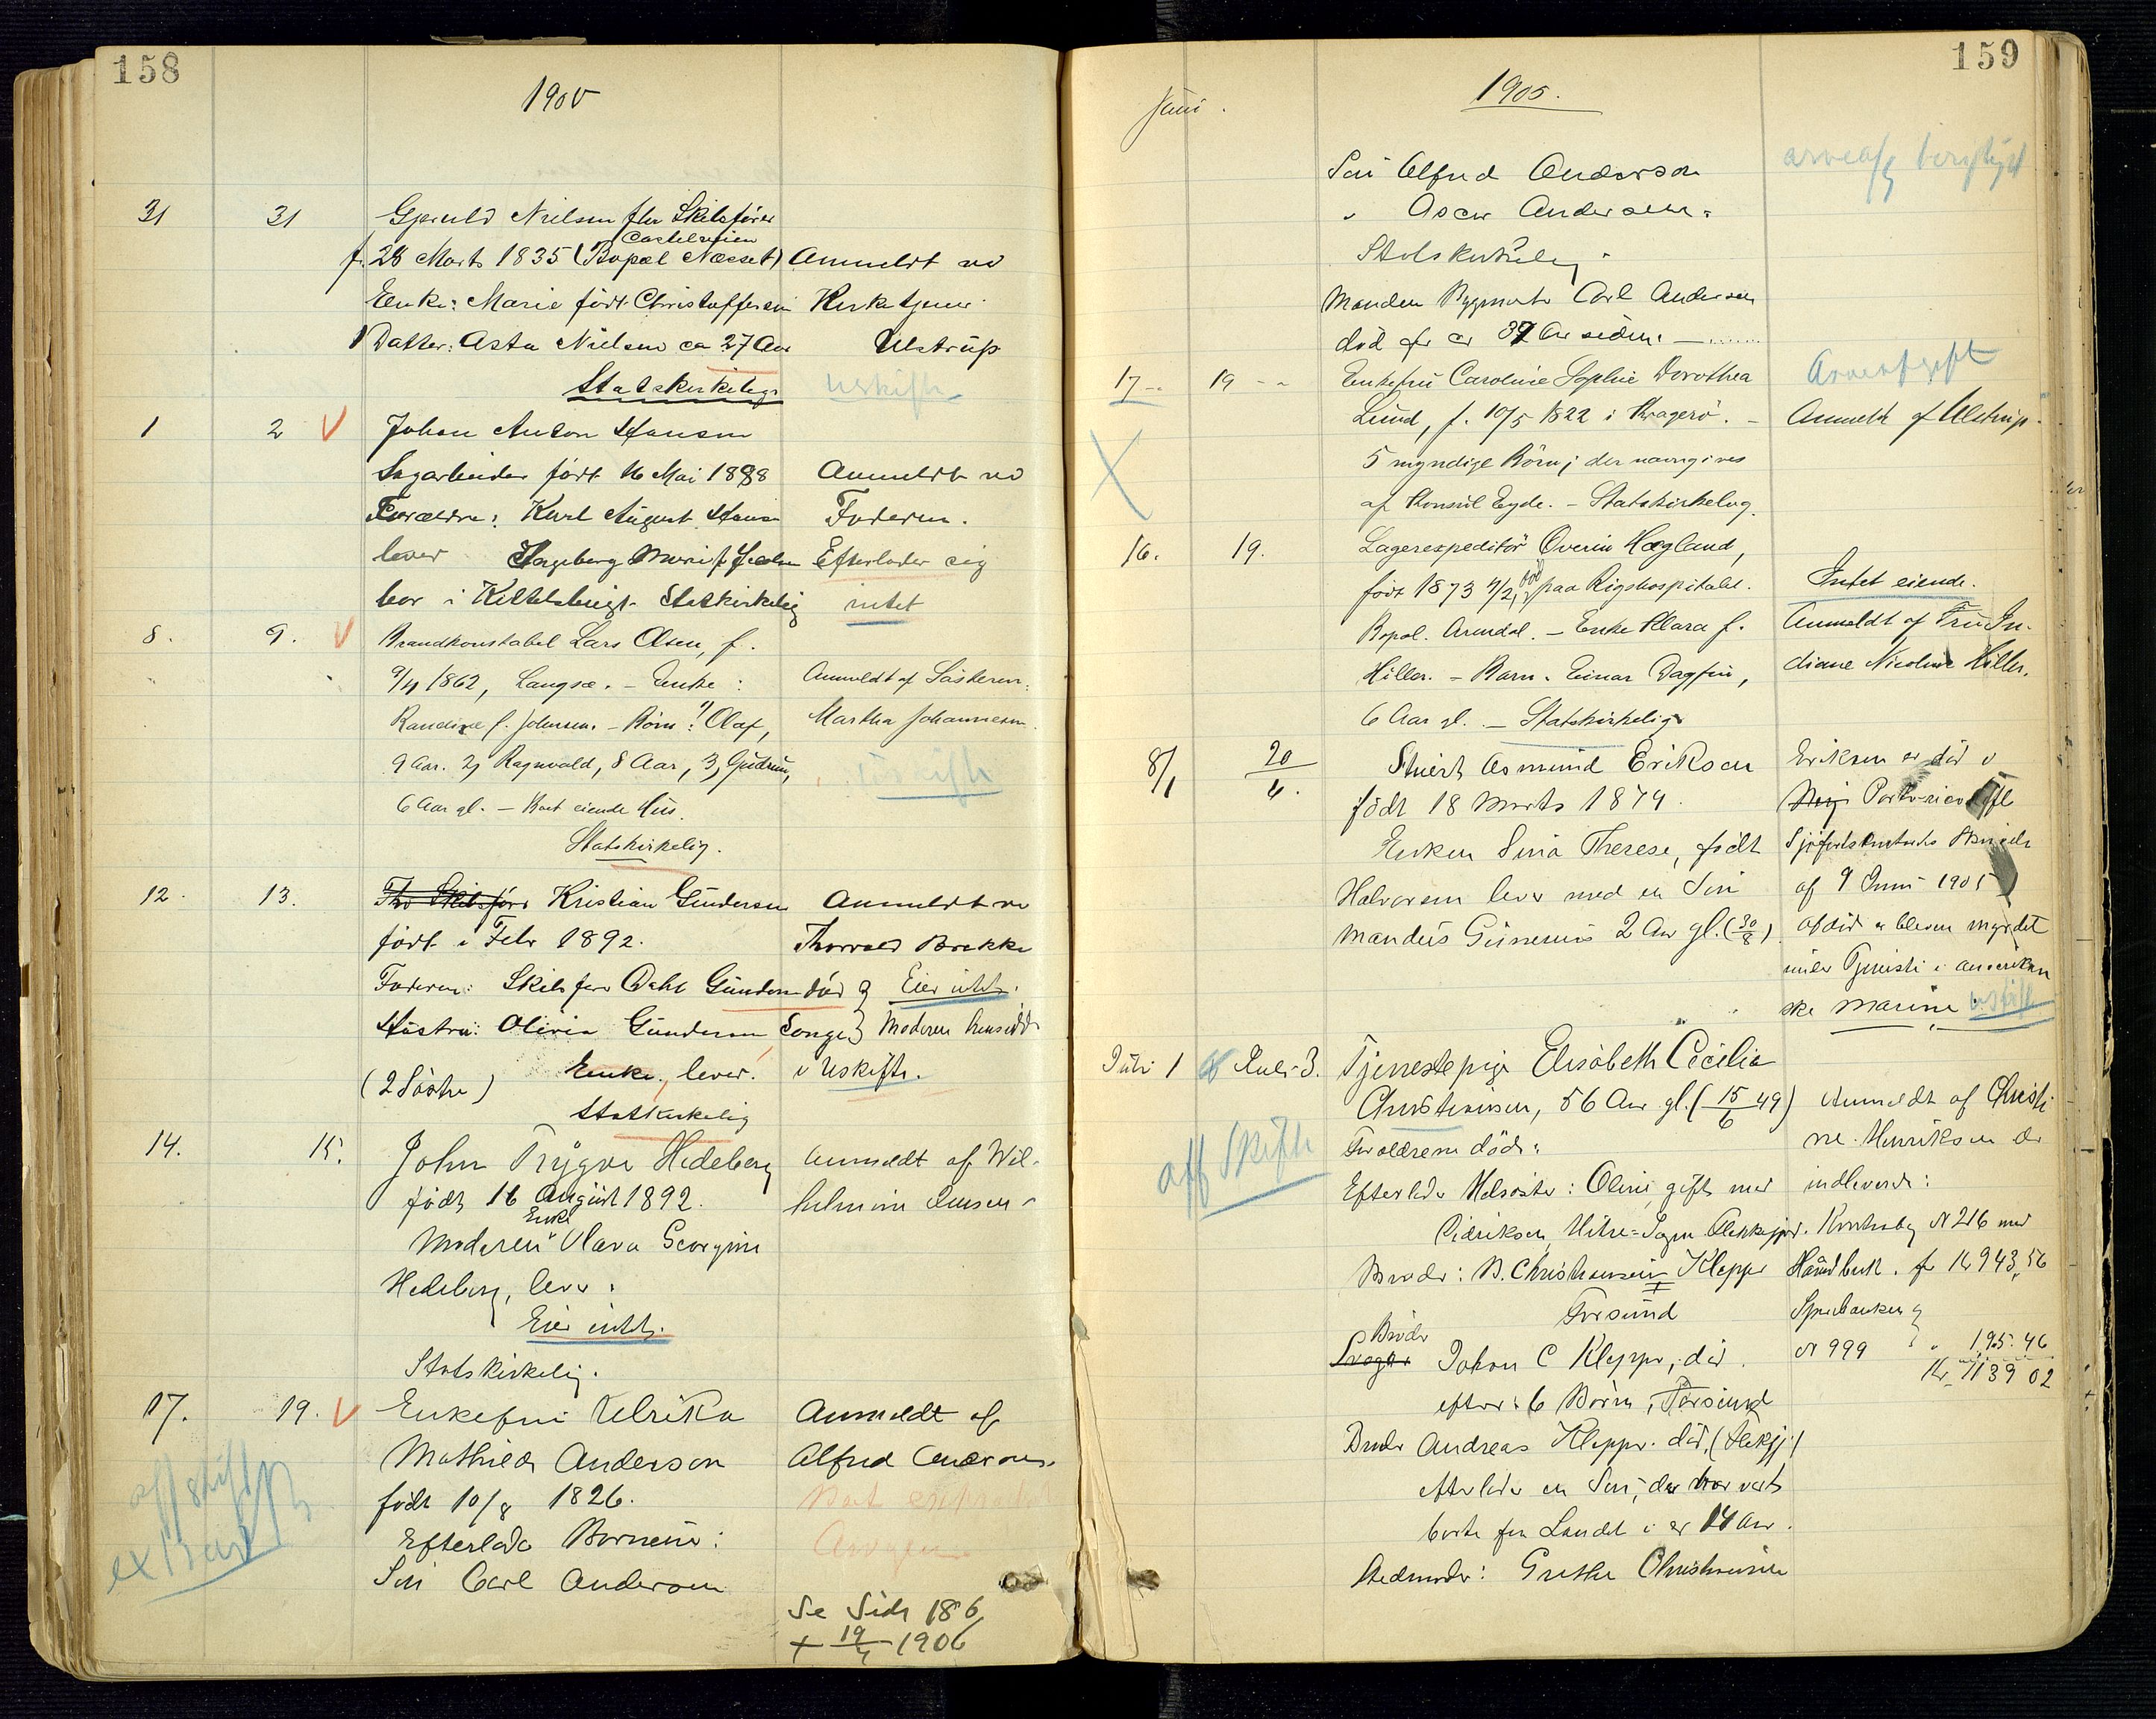 158
1905
31 31 Gjeruld Nielsen fhv Skibsfører
Castelveien
f. 28 Marts 1835 (Bopæl Næsset) Anmeldt ved
Enke: Marie født Christoffersen Kirketjener
1 Datter: Asta Nielsen ca 27 Aar Ulstrup
Statskirkelig uskifte
1 2 V Johan Anton Hansen
Sagarbeider født 16 Mai 1888 Anmeldt ved
Forældre: Karl August Hansen Faderen.
lever Ingeborg Marie f Efterlader sig
bor i Kittelsbugt. Statskirkelig intet
8. 9. V Brandkonstabel Lars Olsen, f.
9/4 1862, Langsæ. – Enke: Anmeldt af Søsteren:
Randine f. Johnsen. – Børn: 1) Olaf, Martha Johannesen.
9 Aar. 2) Ragnvald, 8 Aar, 3) Gudrun, uskifte
6 Aar gl. – Boet eiende Hus.
Statskirkelig.
12. 13. Fhv Skibsfører Kristian Gundersen Anmeldt ved
født i Febr 1892. Thorvald Brekke
Faderen: Skibsfører Dahl Gundersen død Eier intet.
Hustru: Olivia Gundersen Songe Moderen hensidder
Enke, lever. i Uskifte.
(2 Søstre)
Statskirkelig
14. 15. John Trygve Hedeberg Anmeldt af Wil-
født 16 August 1892. helmine Jensen
Enke
Moderen Olava Georgine
Hedeberg, lever.
Eier intet.
Statskirkelig.
17. 19. V Enkefru Ulrika Anmeldt af
Mathilde Anderson Alfred Anderson.
født 10/8 1826.
Efterlader Børnene:
Søn Carl Anderson
off skifte
Se Side 186
+ 19/4 1906
159
Juni. 1905.
Søn Alfred Anderson
" Oscar Anderson.
Statskirkelig.
Manden Bygmester Carl Anderson
død for ca 37 Aar siden. –
17 19 Enkefru Caroline Sophie Dorothea Arveafgift
Lund, f. 10/5 1822 i Kragerø. – Anmeldt af Ulstrup.
X 5 myndige Børn; der navngives
af Konsul Eyde. – Statskirkelig.
16. 19. Lagerexpeditør Överin Hægland,
død
født 1873 4/2, paa Rigshospitalet. Intet eiende.
Bopæl. Arendal. – Enke Klara f. Anmeldt af Fru In-
Hiller. – Barn. Einar Dagfin, diane Nicoline Hiller.
6 Aar gl. – Statskirkelig
8/1 20/6. Stuert Asmund Eriksen Eriksen er død i
født 18 Marts 1874. Portorico ifl
Enken Sina Therese, født Sjøfartskontorets Skrivelse
Halvorsen lever med en Søn af 9 Juni 1905
Mandius Gunerius 2 Aar gl. (30/8). afdød er bleven myrdet
under Tjeneste i amerikan
ske Marine uskifte
Juli 1 Juli 3. Tjenestepige Elisabeth Cecilia
Christensen, 56 Aar gl. (15/6 49) Anmeldt af Christi
Forældrene døde. ne Henriksen der
off Skifte
Efterlader Helsøster: Oline, gift med indleverer:
Didriksen, Hitre=Sogn Flekkefjord. Kontrabog N 216 med
Broder: B. Christensen Kleppe Haandbeck. for Kr 943,56
Forsund Sparebanken
Broder
Svoger Johan C Kleppe, død. N 999 " 195.46
Kr 1139 02
efter: 6 Børn, Forsund
Broder Andreas Kleppe. død. (Flekkfj.)
efterlader en Søn, der har vært
borte fra Landet i ca 14 Aar.
Stedmoder: Grethe Christensen